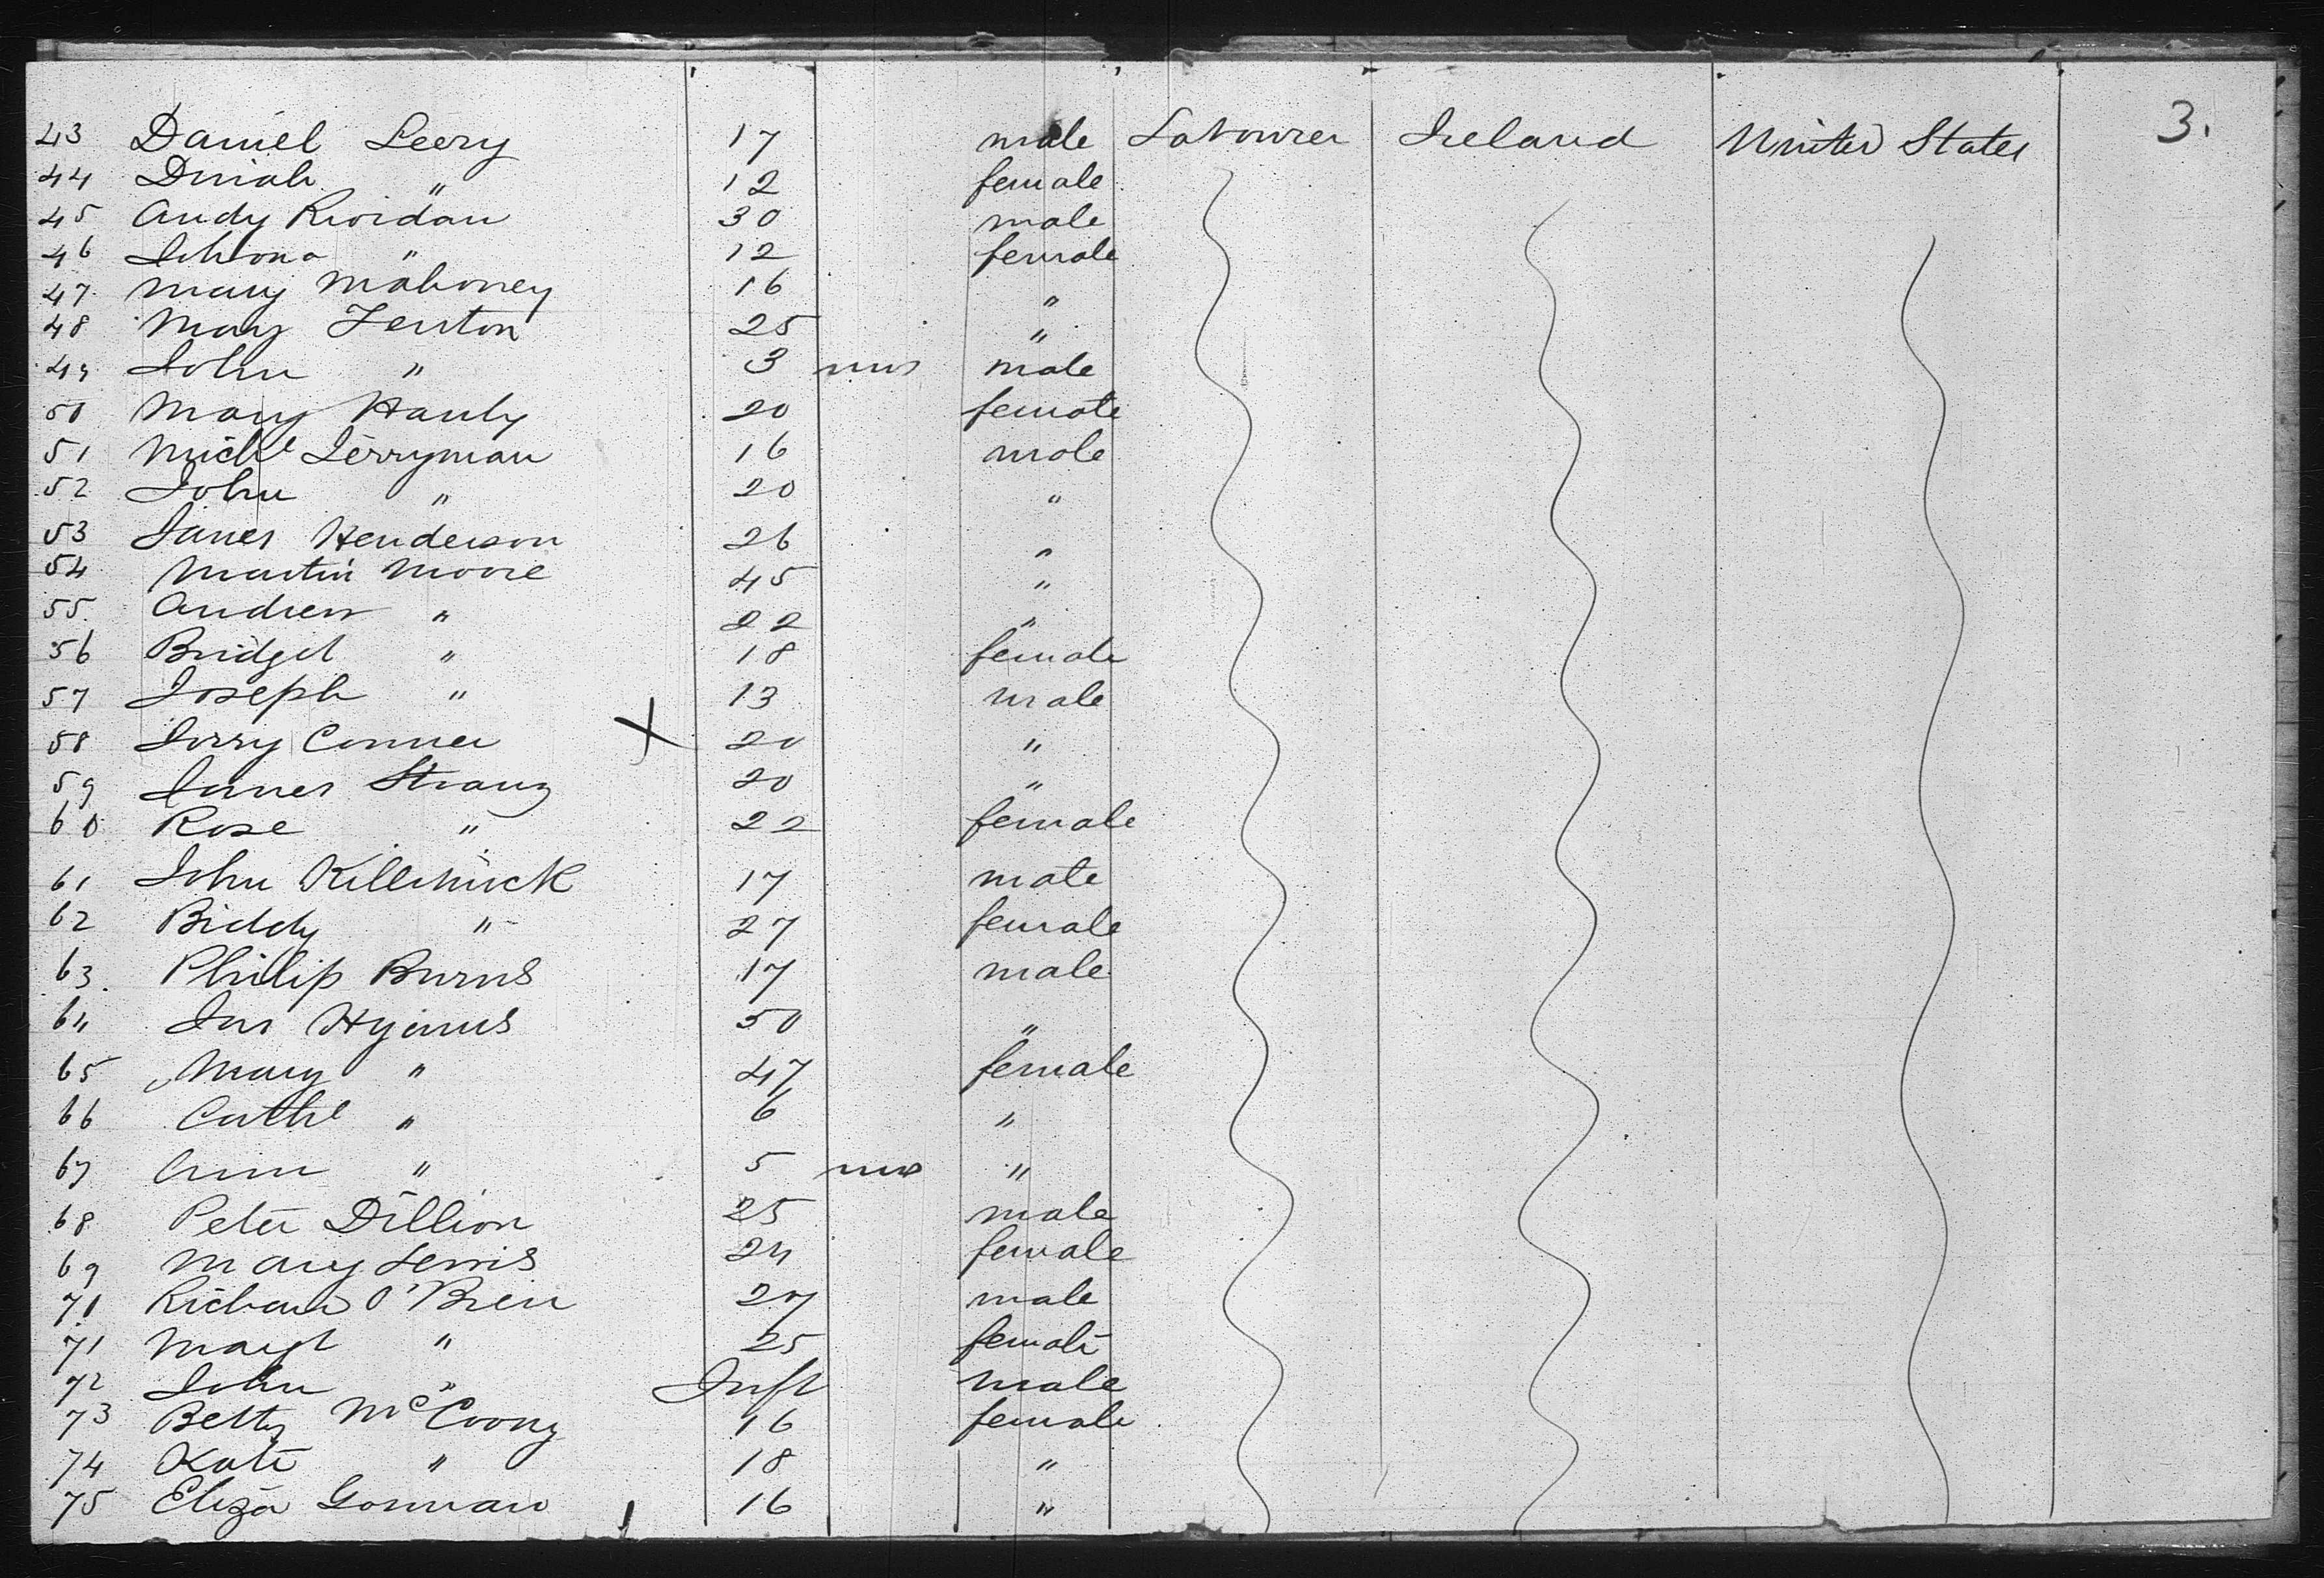 3.
43 Daniel Leery 17 male Labourer Ireland United States
44 Dinah " 12 female
45 Andy Riordan 30 male
46 Johona " 12 female
47 Mary Mahoney 16 "
48 Mary Fenton 25 "
49 John " 3 mos male
50 Mary Hanly 20 female
51 Michl Jerryman 16 male
52 John " 20 "
53 James Henderson 26 "
54 Martin Moore 45 "
55 Andrew " 22 "
56 Bridget " 18 female
57 Joseph " 13 male
58 Jerry Conner X 20 "
59 James Strang 20 "
60 Rose " 22 female
61 John Killimick 17 male
62 Biddy " 27 female
63 Philip Burns 17 male
64 Jas 50 "
65 Mary " 47 female
66 Cathe " 6 "
67 Ann " 5 mos "
68 Peter Dillion 25 male
69 Mary Lewis 24 female
70 Richard O'Brien 27 male
71 Margt " 25 female
72 John " Inft male
73 Betty McCoony 16 female
74 Kate " 18 "
75 Eliza Gorman 16 "